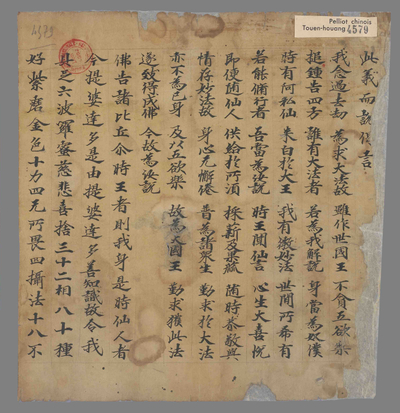 Pelliot chinois
Touen-houang 4579
4579
此義而說偈言
我念過去劫 為求大法故 雖作世國王 不貪五欲樂
搥鍾告四方 誰有大法者 若為我解說 身當為奴僕
時有阿私仙 來白於大王 我有微妙法 世間所希有
若能修行者 吾當為汝說 時王聞仙言 心生大喜悅
即便隨仙人 供給於所須 採薪及菓蓏 隨時恭敬與
情存妙法故 身心无懈惓 普為諸眾生 勤求於大法
亦不為己身 及以五欲樂 故為大國王 勤求獲此法
遂致得成佛 今故為汝說
佛告諸比丘尒時王者則我身是時仙人者
今提婆達多是由提婆達多善知識故令我
具足六波羅蜜慈悲喜捨三十二相八十種
好紫磨金色十力四无所畏四攝法十八不